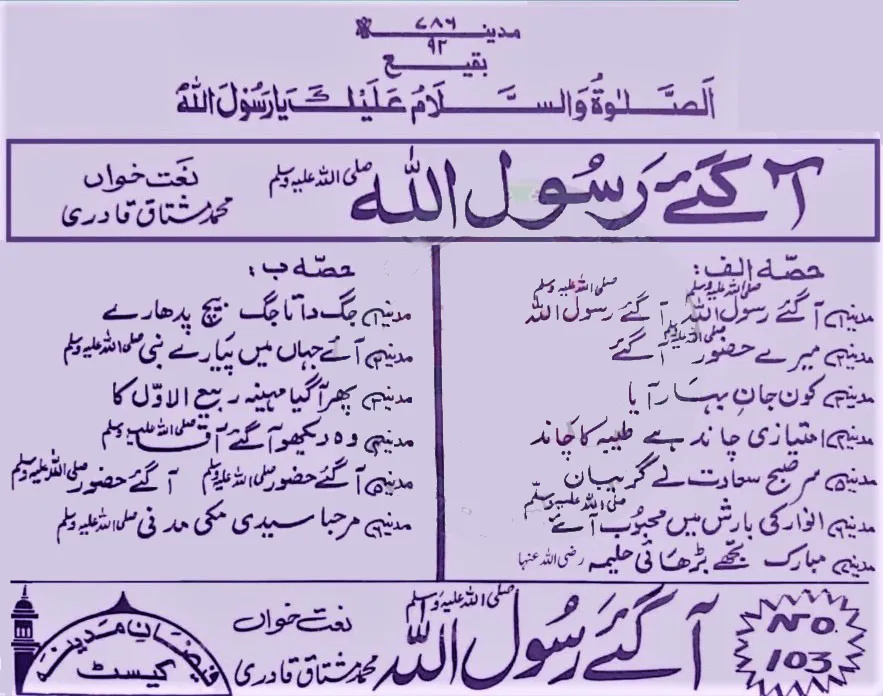 مدینہ ۷۸۶
۹۲
بقیع
اَلصَّلٰوۃُ وَالسَّلَامُ عَلَیْكَ یَارَسُوْلَ اللّٰہ
آ گئے رَسُوْلُ اللّٰہ صلی اللہ علیہ وسلم
نعَت خواں
محمد مشتاق قادری
حصّہ الف:
مدینہ ۱ آ گئے رسول اللہ صلی اللہ علیہ وسلم آ گئے رسول اللہ صلی اللہ علیہ وسلم
مدینہ ۲ میرے حضور صلی اللہ علیہ وسلم آ گئے
مدینہ ۳ کون جانِ بہار آیا
مدینہ ۴ امتیازی چاند ہے طیبہ کا چاند
مدینہ ۵ سر صبح سعادت نے گریبان
مدینہ ۶ انوار کی بارش میں محبُوب صلی اللہ علیہ وسلم آئے
مدینہ ۷ مبارک تجھے بڑھائی حلیمہ رضی اللہ عنہا
حصّہ ب:
مدینہ ۱ جگ داتا جگ بیچ پدھارے
مدینہ ۲ آئے جہاں میں پیارے نبی صلی اللہ علیہ وسلم
مدینہ ۳ پھر آ گیا مہینہ ربیع الاوّل کا
مدینہ ۴ وہ دیکھو آ گئے آقا صلی اللہ علیہ وسلم
مدینہ ۵ آ گئے حضور صلی اللہ علیہ وسلم آ گئے حضور صلی اللہ علیہ وسلم
مدینہ ۶ مرحبا سیدی مکی مدنی صلی اللہ علیہ وسلم
NO.
103
آ گئے رَسُوْلُ اللّٰہ صلی اللہ علیہ وسلم
نعت خواں
محمد مشتاق قادری
فیضانِ مدینہ
کیسٹ